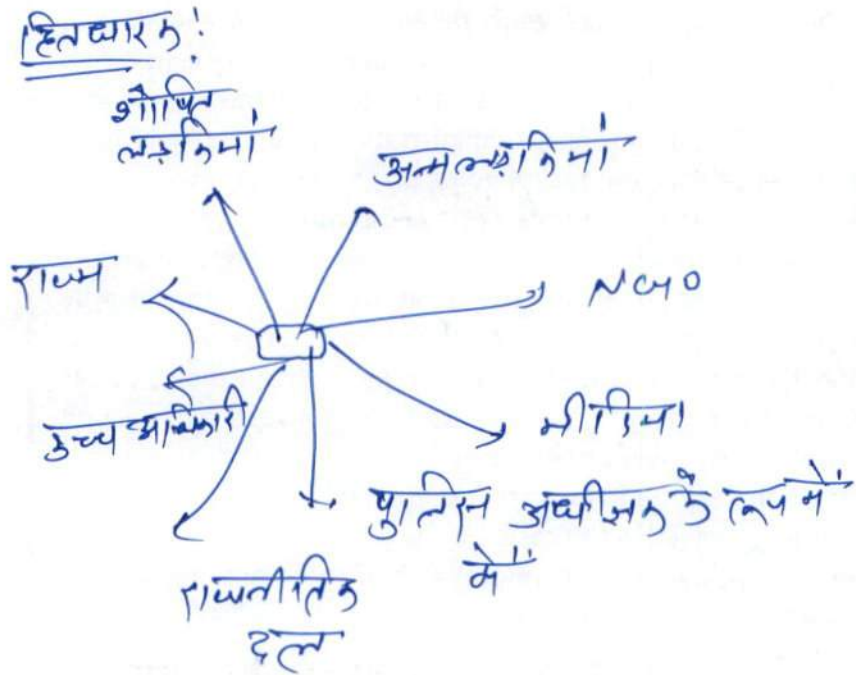 हितधारक:
शोषित
लड़कियां
अन्य लड़कियां
राज्य
NGO
उच्च अधिकारी
मीडिया
पुलिस अधीक्षक के रूप में
में
राजनीतिक
दल